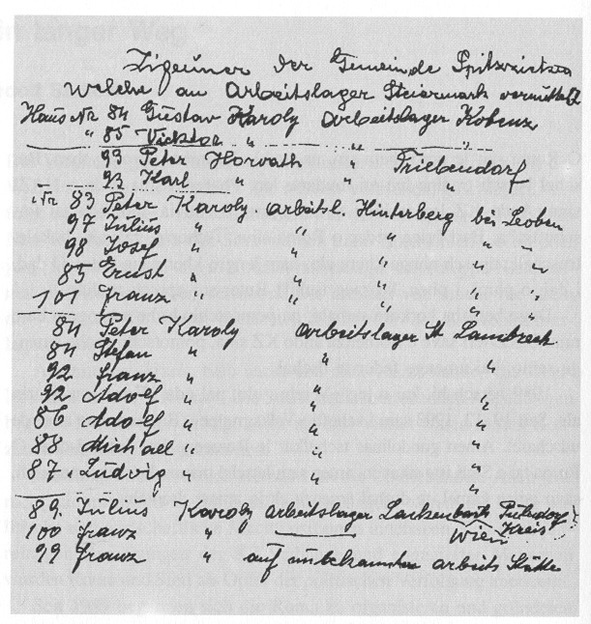 Zigeuner der Gemeinde Spitzzicken
welche an Arbeitslager Steiermark vermittelt
Haus Nr 84 Gustav Karoly Arbeitslager Kobenz
" 85 Vicktor " "
93 Peter Horvath " Triebendorf
93 Karl " " "
Nr 83 Peter Karoly arbeitsl. Hinterberg bei Leoben
97 Julius " " " " "
98 Josef " " " " "
85 Ernst " " " " "
101 franz " " " " "
84 Peter Karoly arbeitslager St Lambrech
84 Stefan " " "
92 franz " " "
92 Adolf " " "
86 Adolf " " "
88 Michael " " "
87 Ludvig " " "
89 Julius Karoly arbeitslager Lackenbach
100 franz " Wien Kreis
99 franz " auf unbekannten arbeits Stätte